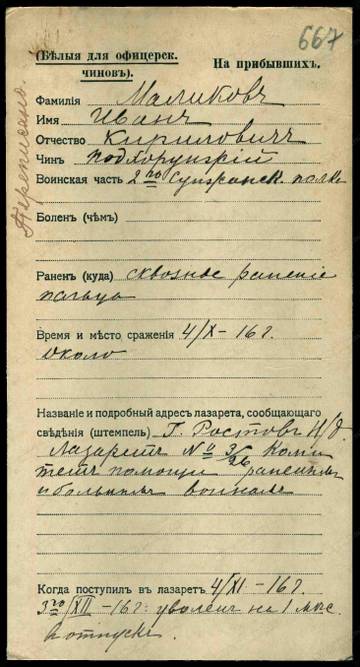 667
(Бѣлыя для офицерск. чиновъ).
На прибывшихъ.
Переписано.
Фамилія Маликовъ
Имя Иванъ
Отчество Кириловичъ
Чинъ подхорунжій
Воинская часть 2го Сунженск. полка
Боленъ (чѣмъ)
Раненъ (куда) сквозное раненіе
пальца
Время и мѣсто сраженія 4/X – 16 г.
около
Названіе и подробный адресъ лазарета, сообщающаго
свѣдѣнія (штемпель) Г. Ростовъ Н/Д.
Лазаретъ № 3/26 Коми
тетъ помощи раненымъ
и больнымъ воинамъ
Когда поступилъ въ лазаретъ 4/XI – 16 г.
3го/XII – 16 г. уволенъ на 1 мѣс.
въ отпускъ.